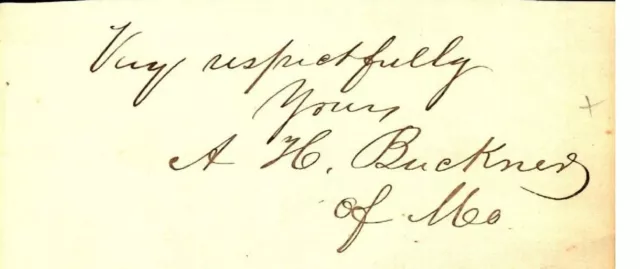 Very respectfully
Yours
A H. Buckner
of Mo.